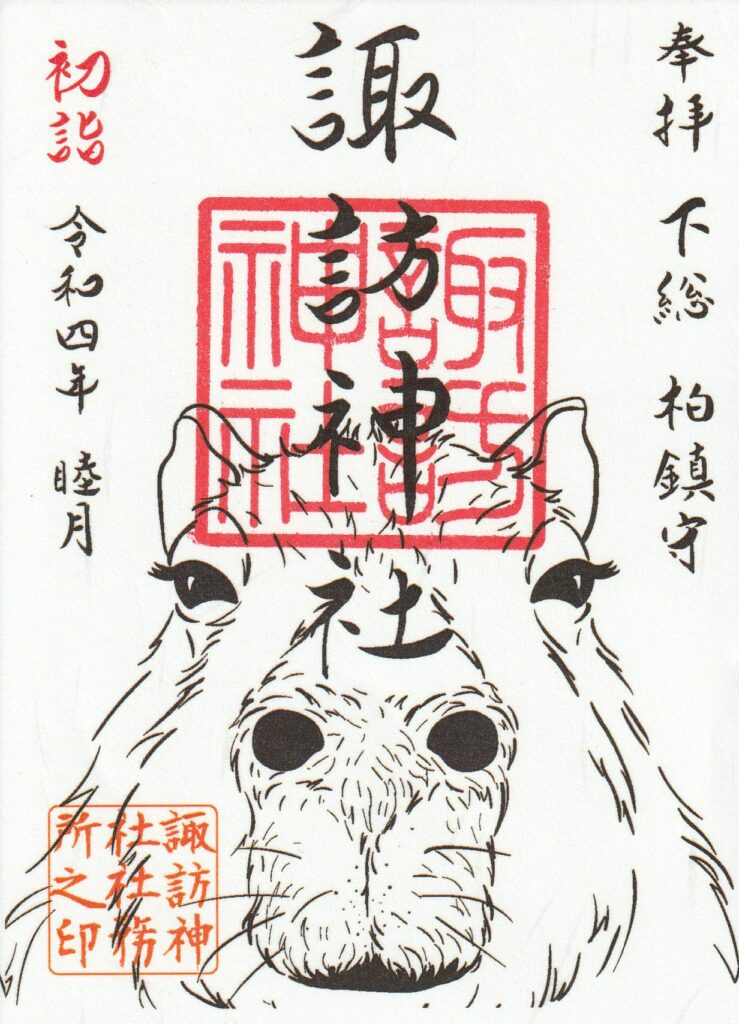 奉拝 下総 柏鎮守
諏訪神社
諏訪
神社
初詣 令和四年 睦月
諏訪神
社社務
所之印